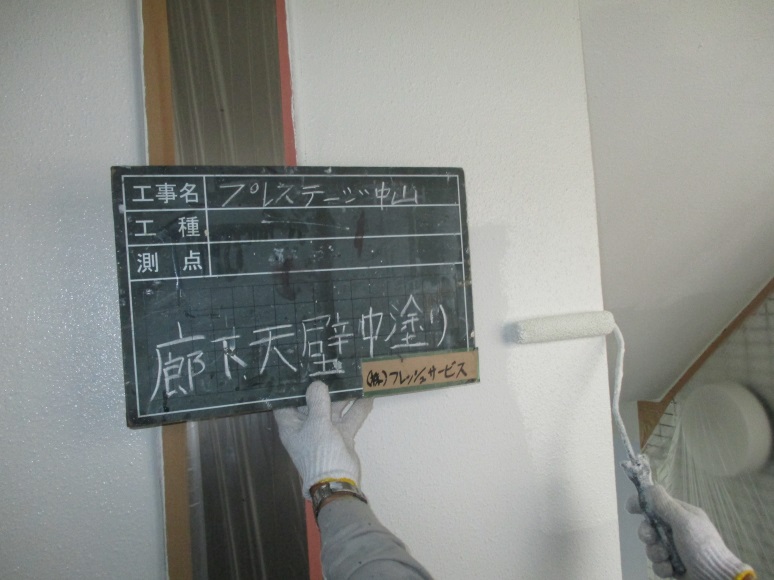 工事名 プレステージ中山
工種
測点
廊下天壁中塗り
(株)フレッシュサービス